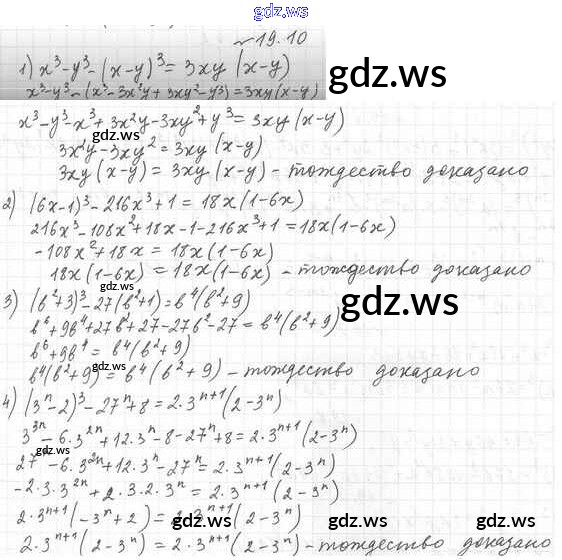 gdz.ws
~ 19.10
1) x³-y³-(x-y)³= 3xy (x-y)
x³-y³-(x³-3x²y+3xy²-y³)=3xy(x-y)
gdz.ws
x³-y³-x³+3x²y-3xy²+y³= 3xy (x-y)
gdz.ws
3x²y-3xy²=3xy (x-y)
3xy (x-y) = 3xy (x-y) - тождество доказано
2) (6x-1)³-216x³+1 = 18x(1-6x)
216x³-108x²+18x-1-216x³+1=18x(1-6x)
-108x²+18x = 18x(1-6x)
18x(1-6x) = 18x(1-6x) - тождество доказано
gdz.ws
3) (b²+3)³-27(b²+1)=b⁴(b²+9)
gdz.ws
b⁶+9b⁴+27b²+27-27b²-27 = b⁴(b²+9)
b⁶+9b⁴= b⁴(b²+9)
b⁴(b²+9)= b⁴(b²+9) - тождество доказано
4) (3ⁿ-2)³-27ⁿ+8=2·3ⁿ⁺¹(2-3ⁿ)
3³ⁿ-6·3²ⁿ+12·3ⁿ-8-27ⁿ+8=2·3ⁿ⁺¹(2-3ⁿ)
gdz.ws
27ⁿ-6·3²ⁿ+12·3ⁿ-27ⁿ=2·3ⁿ⁺¹(2-3ⁿ)
-2·3·3²ⁿ+2·3·2·3ⁿ=2·3ⁿ⁺¹(2-3ⁿ)
2·3ⁿ⁺¹(-3ⁿ+2) = 2·3ⁿ⁺¹(2-3ⁿ)
gdz.ws gdz.ws gdz.ws
2·3ⁿ⁺¹(2-3ⁿ) = 2·3ⁿ⁺¹(2-3ⁿ) - тождество доказано